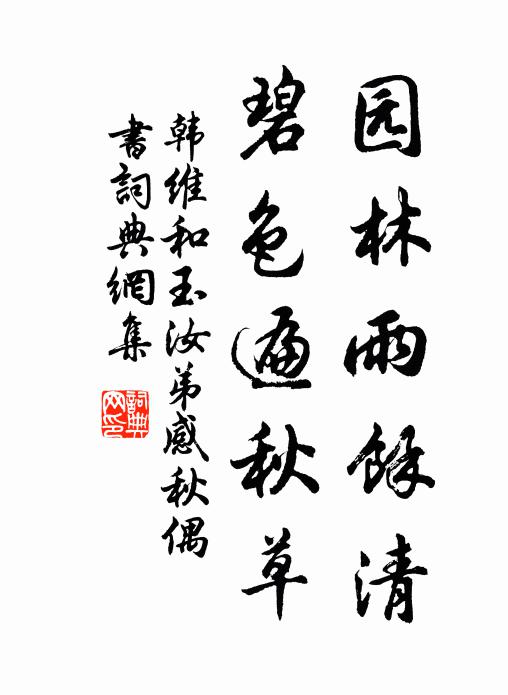 园林雨馀清
碧色遍秋草
韩维和玉汝弟感秋偶
書詞典網集
詞典网印